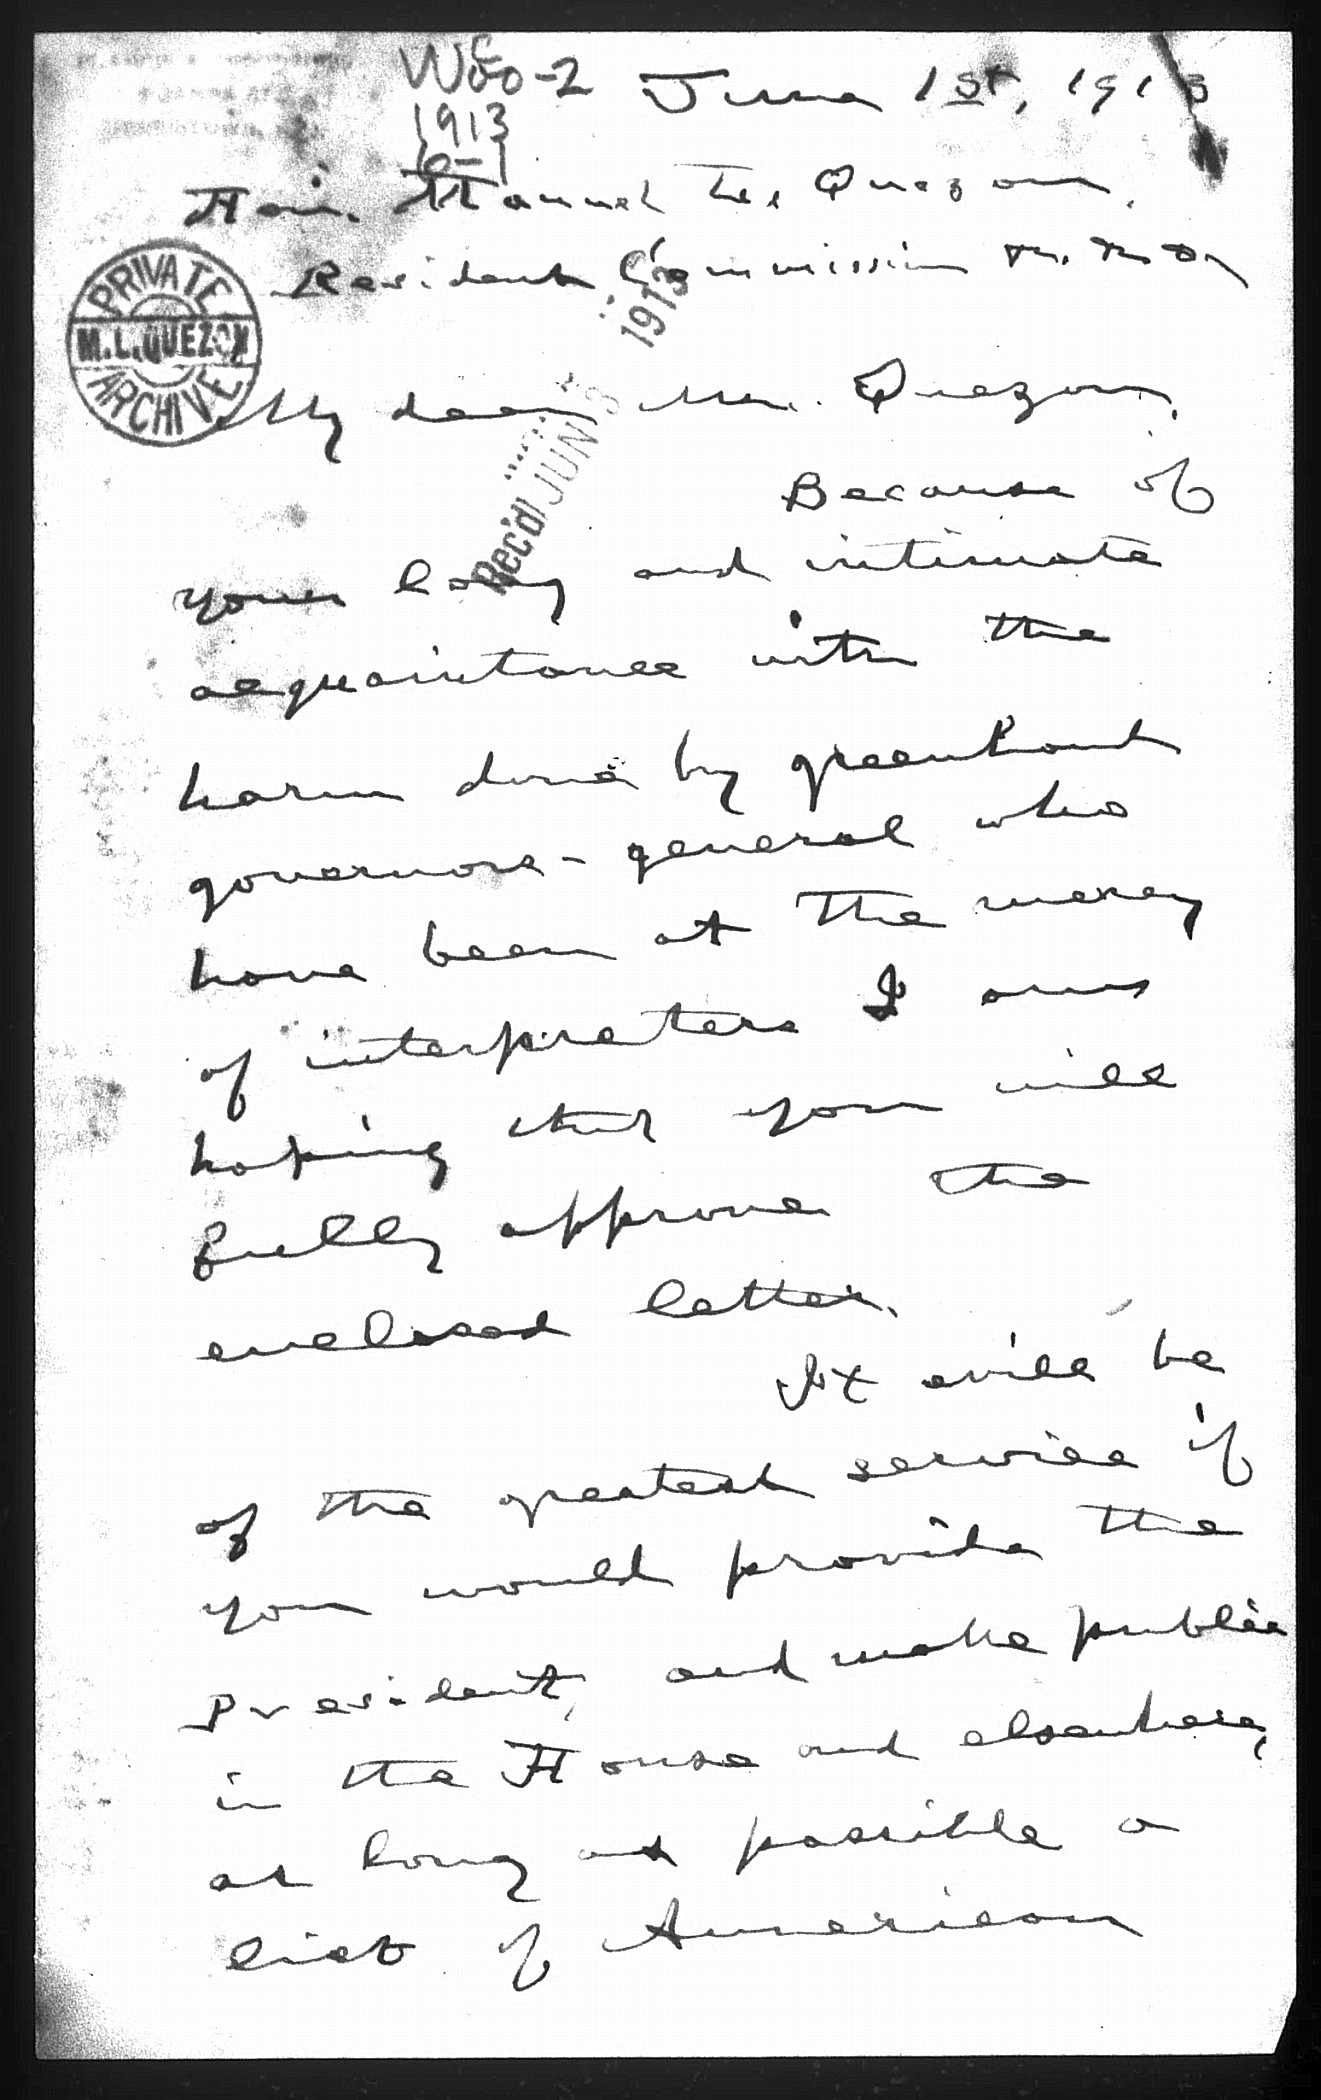 WFo-2
June 1st, 1913
1913
6-1
Hon. Manuel L. Quezon,
Resident Commissioner
PRIVATE
M.L. QUEZON
ARCHIVE
1913
Rec'd JUN 3
My dear Mr. Quezon,
Because of
your long and intimate
acquaintance with the
harm done by greenhand
governors-general who
have been at the mercy
of interpreters I am
hoping that you will
fully approve the
enclosed letter.
It will be
of the greatest service if
you would provide the
President, and make public
in the House and elsewhere,
as long as possible a
list of American